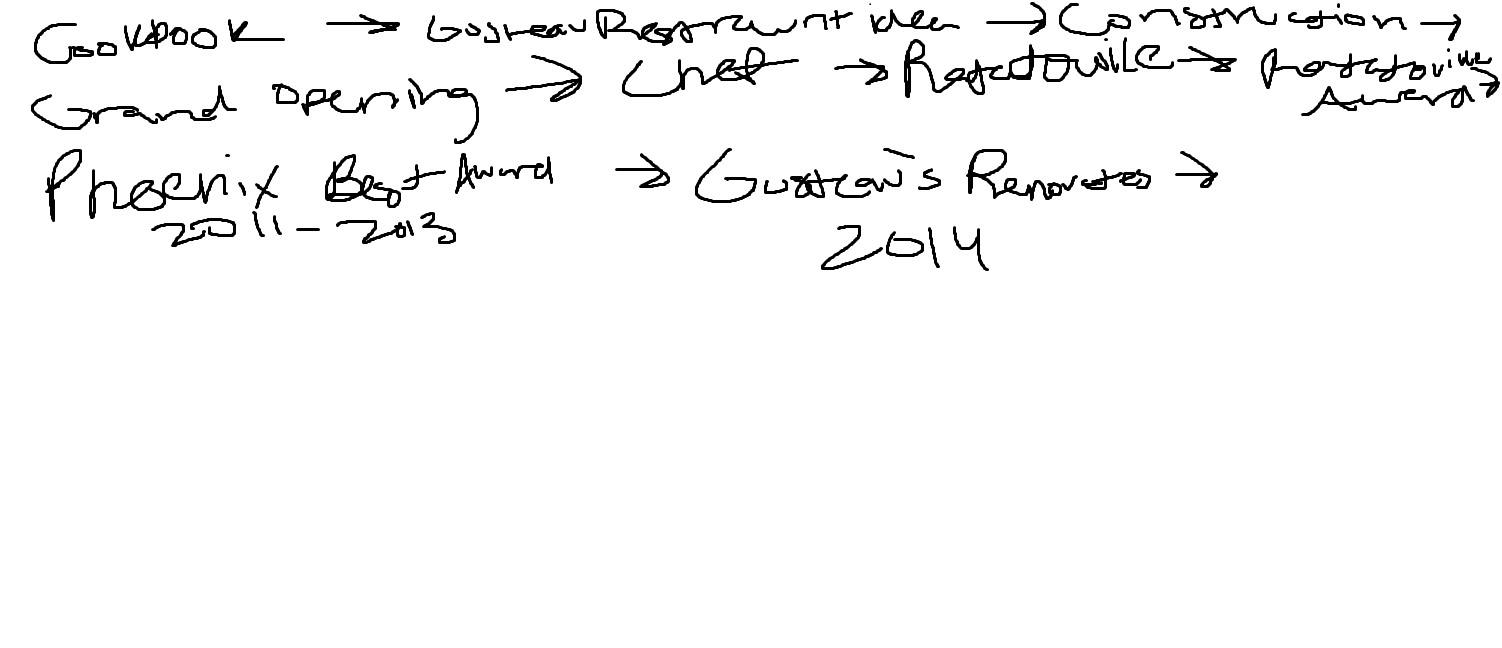 Cookbook → Gusteau Restraunt idea → Construction →
Grand Opening → Chef → Ratatouile → Ratatouile Award →
Phoenix Best Award → Gusteau's Renovates →
2011-2013 2014